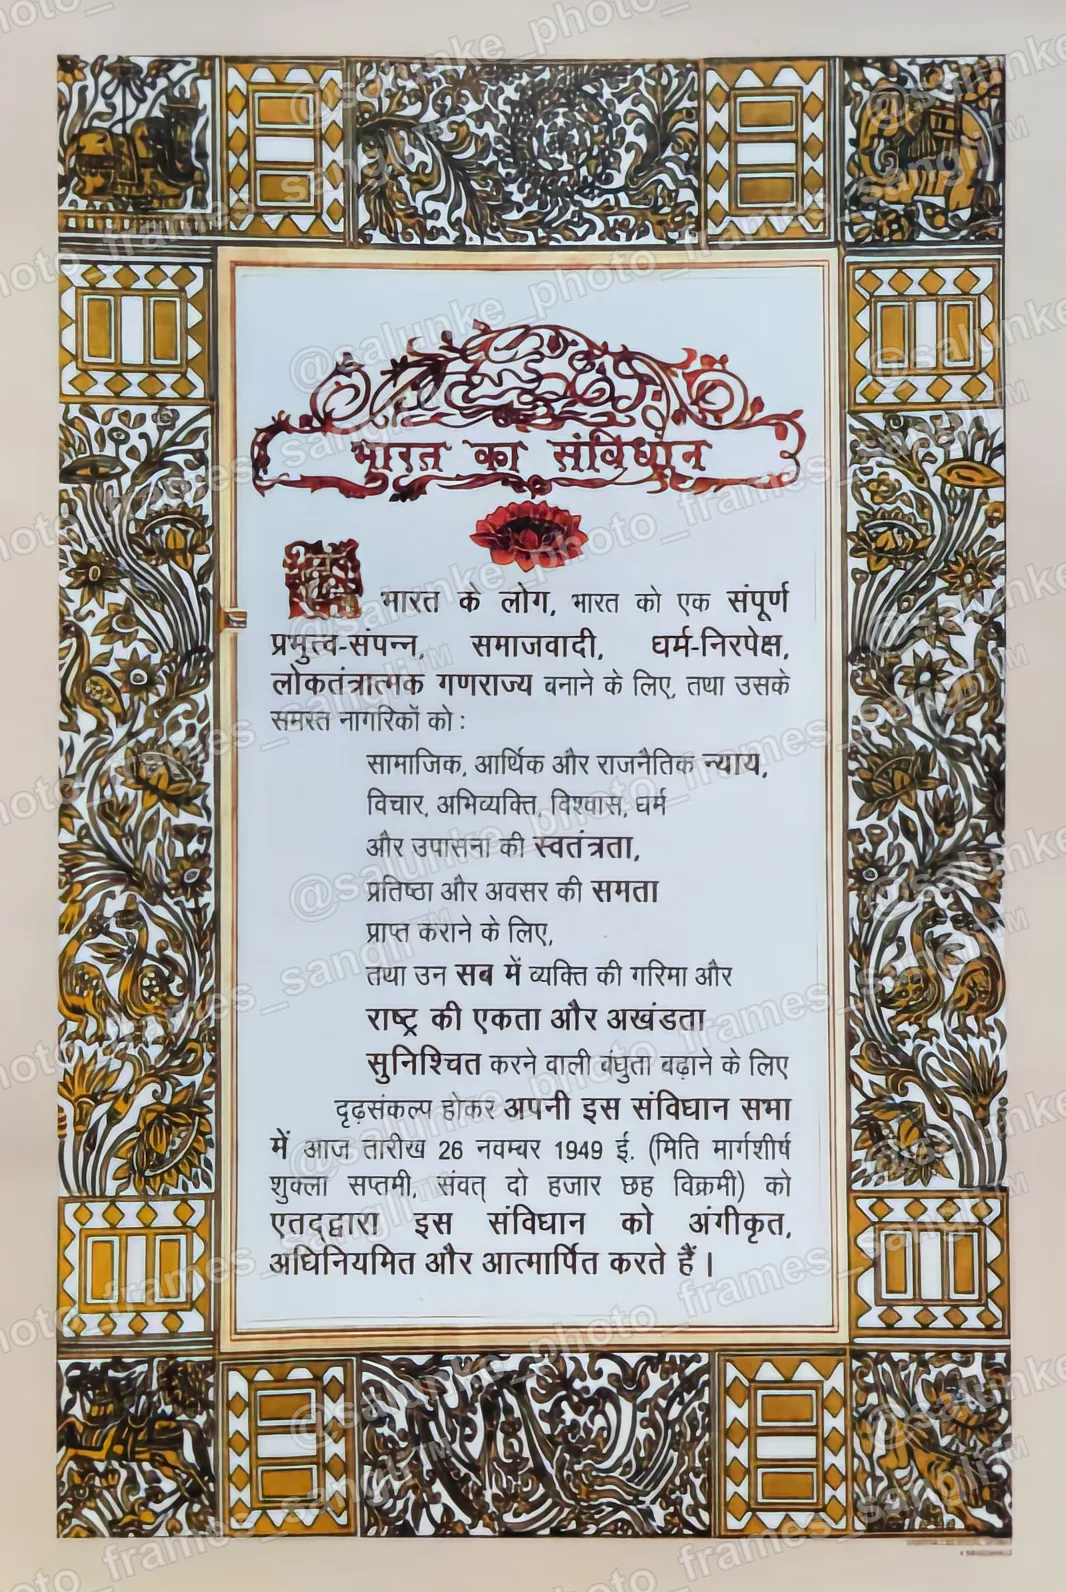 भारत का संविधान
हम भारत के लोग, भारत को एक संपूर्ण
प्रभुत्व-संपन्न, समाजवादी, धर्म-निरपेक्ष,
लोकतंत्रात्मक गणराज्य बनाने के लिए, तथा उसके
समस्त नागरिकों को :
सामाजिक, आर्थिक और राजनैतिक न्याय,
विचार, अभिव्यक्ति, विश्वास, धर्म
और उपासना की स्वतंत्रता,
प्रतिष्ठा और अवसर की समता
प्राप्त कराने के लिए,
तथा उन सब में व्यक्ति की गरिमा और
राष्ट्र की एकता और अखंडता
सुनिश्चित करने वाली बंधुता बढ़ाने के लिए
दृढ़संकल्प होकर अपनी इस संविधान सभा
में आज तारीख 26 नवम्बर 1949 ई. (मिति मार्गशीर्ष
शुक्ला सप्तमी, संवत् दो हजार छह विक्रमी) को
एतद्द्वारा इस संविधान को अंगीकृत,
अधिनियमित और आत्मार्पित करते हैं ।
@salunke_photo_frames_sangli™